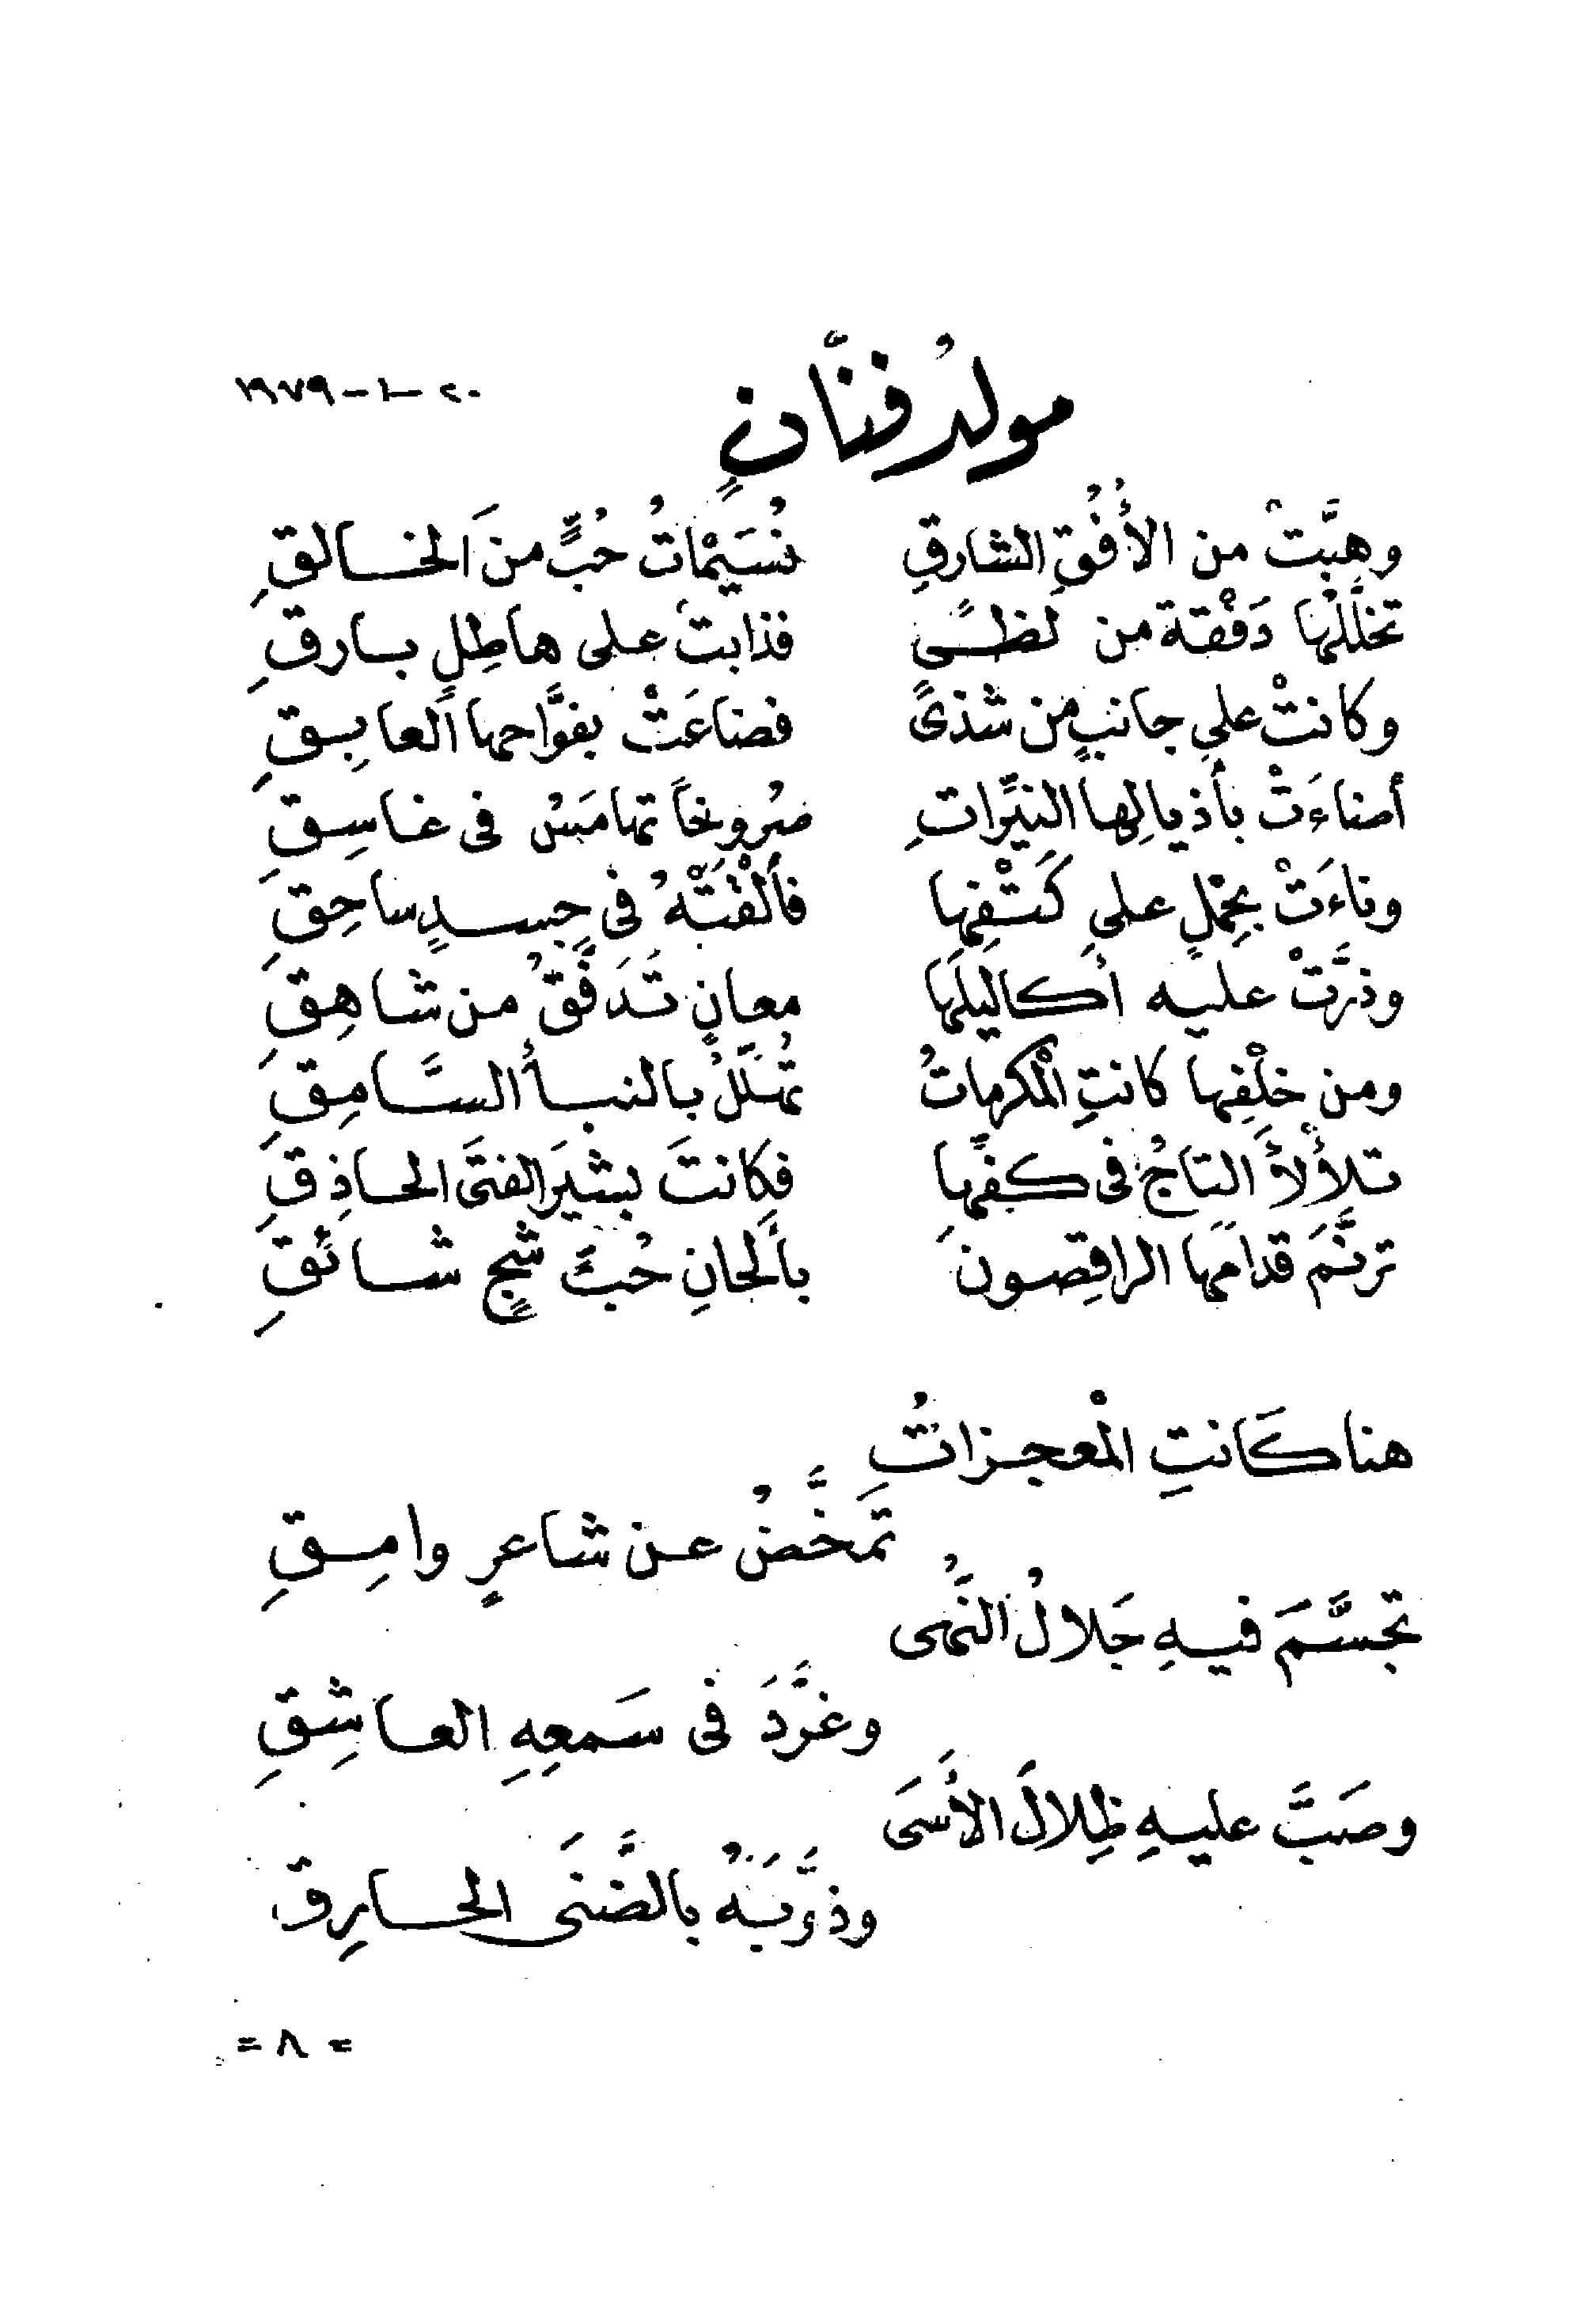 مولدُ فنَّانٍ
٢٠-١-١٩٧٩
وهبَّتْ من الأُفُقِ الشارقِ نُسَيْماتُ حُبٍّ منَ الخالقِ
تخلَّلَها دَفْقة من لَظىً فذابتْ على هاطِلٍ بارقِ
وكانتْ على جانبٍ من شذىً فضاعَتْ بفوَّاحها العابِقِ
أضاءَتْ بأذيالِها النيِّراتِ صُروخاً تهامَسُ فى غاسِقِ
وناءَتْ بحِمْلٍ على كَتْفِها فألْقتْهُ فى جسدٍ ساحِقِ
وذرَّتْ عليه أكاليلَها معانٍ تَدَفَّقُ من شاهِقِ
ومن خلْفِها كانتِ الْمكرماتُ تُهلّلُ بالنبأ السَّامِقِ
تلألأَ التاجُ فى كفِّها فكانتَ بشيَر الفتَى الحاذِقِ
ترنَّمَ قدامَها الراقِصونَ بألحانِ حُبٍّ شجٍ شائقِ
هنا كَانتِ الْمعجزاتُ
تمَخَّضُ عن شاعرٍ وامِقِ
تجسَّمَ فيهِ جَلالُ النُّهى
وغرَّدَ فى سَمعِهِ العاشِقِ
وصَبَّ عليهِ ظِلالَ الأَسَى
وذوَّبَهُ بالضَّنَى الحارِق
=٨=